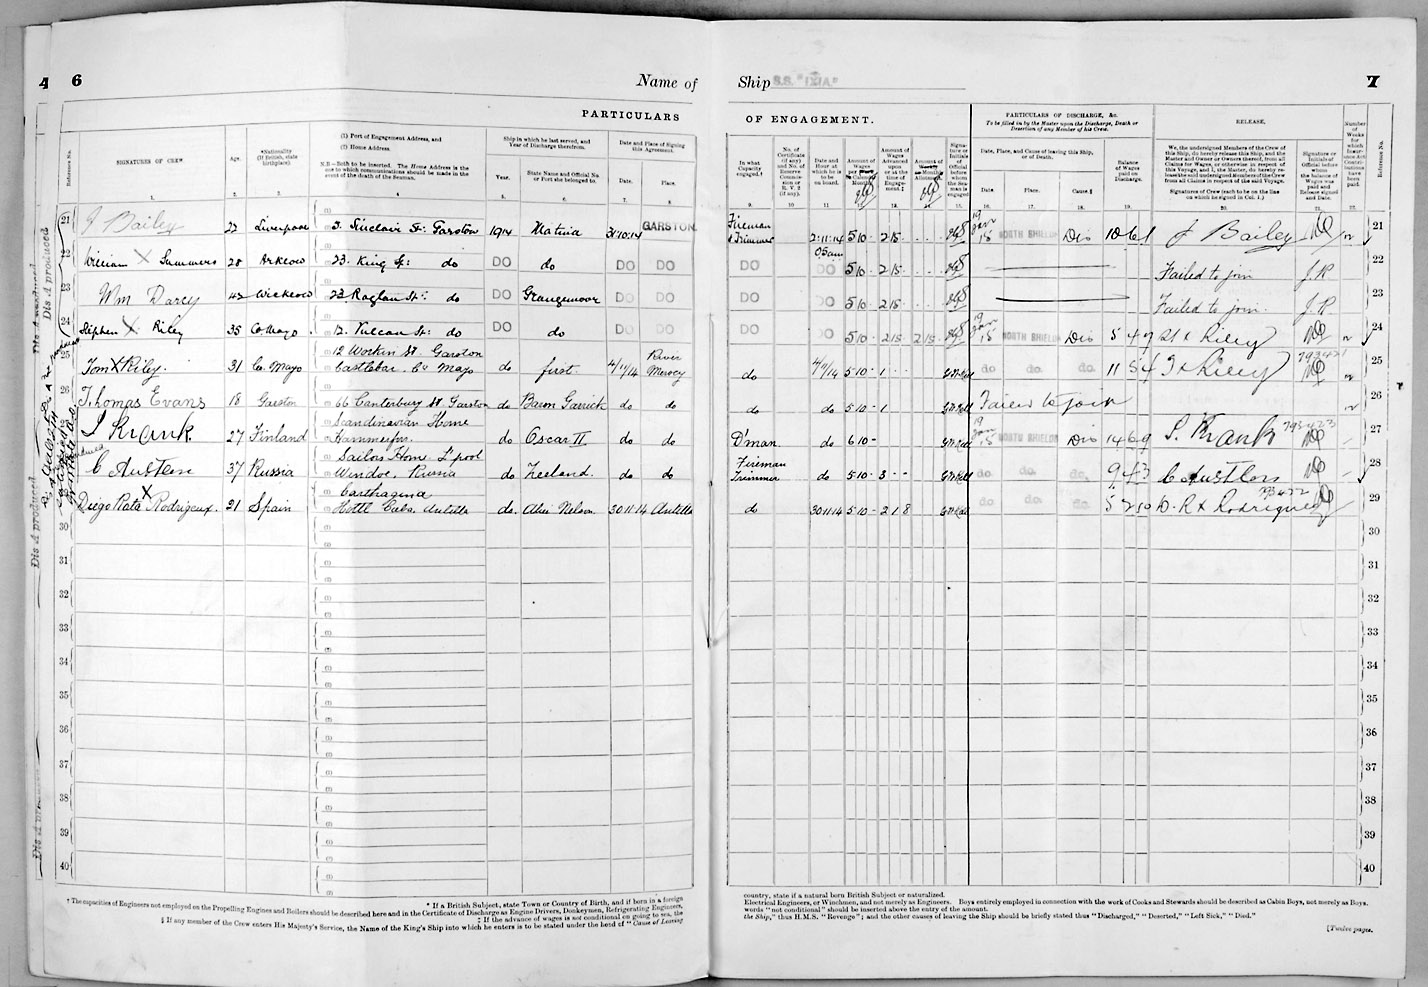 4 6 Name of Ship S.S. "IXIA" 7
PARTICULARS OF ENGAGEMENT.
PARTICULARS OF DISCHARGE, &c.
To be filled in by the Master upon the Discharge, Death or Desertion of any Member of his Crew.
RELEASE.
Reference No.
SIGNATURES OF CREW.
Age.
*Nationality
(If British, state birthplace).
(1) Port of Engagement Address, and
(2) Home Address.
N.B.—Both to be inserted. The Home Address is the one to which communications should be made in the event of the death of the Seaman.
Ship in which he last served, and Year of Discharge therefrom.
Year.
State Name and Official No. or Port she belonged to.
Date and Place of Signing this Agreement.
Date.
Place.
In what Capacity engaged.†
No. of Certificate (if any) and No. of Reserve Commission or R.V. 2 (if any).
Date and Hour at which he is to be on board.
Amount of Wages per Calendar Month.
Amount of Wages Advanced at the time of Engagement.‡
Amount of Monthly Allotment.
Signature or Initials of Official before whom the Seaman is engaged.
Date, Place, and Cause of leaving this Ship, or of Death.
Date.
Place.
Cause.§
Balance of Wages paid on Discharge.
We, the undersigned Members of the Crew of this Ship, do hereby release this Ship, and the Master and Owner or Owners thereof, from all Claims for Wages, or otherwise in respect of this Voyage, and I, the Master, do hereby release the said undersigned Members of the Crew from all Claims in respect of the said Voyage.
Signatures of Crew (each to be on the line on which he signed in Col. 1.)
Signature or Initials of Official before whom the balance of Wages was paid and Release signed and Date.
Number of Weeks for which Insurance Act Contributions have been paid.
Reference No.
21 J Bailey 22 Liverpool 3. Sinclair St: Garston 1914 31·10·14 GARSTON Fireman & Trimmer 2·11·14 5 10 2 15 19 Jan 15 NORTH SHIELDS Dis J Bailey 21
22 William X Summers 28 Arklow 23. King St: do DO do DO DO DO DO 5 10 2 15 Failed to join J.R. 22
23 Wm Darcy 42 Wicklow 23 Raglan St: do DO Grangemoor DO DO DO DO 5 10 2 15 Failed to join. J.R. 23
24 Stephen X Riley 35 Co Mayo 12. Vulcan St: do DO do DO DO DO DO 5 10 2 15 2 15 19 Jan 15 NORTH SHIELDS Dis 5 4 9 St X Riley 24
25 Tom X Riley. 31 Co. Mayo 12 Workin St. Garston
Castlebar. Co Mayo do first. 4/11/14 River Mersey do 4/11/14 5 10 - 1 do do do 11 5 4 T X Riley 793421 25
26 Thomas Evans 18 Garston 66 Canterbury St. Garston do Baron Garrick do do do do 5 10 - 1 Failed to join 26
27 27 Finland Scandinavian Home
do Oscar II do do D'man do 6 10 - 19 Jan 15 NORTH SHIELDS Dis 14 6 9 793423 27
28 C Austen 37 Russia Sailors Home. L'pool
Windoe, Russia do Zeeland. do do Fireman Trimmer do 5 10 - 3 - - do do do 9 4 3 28
29 Diego Rata X Rodrigeux. 21 Spain Carthagena
Hotel Cuba. Antilla do. Nelson 30 11 14 Antilla do 30 11 14 5 10 - 2 1 8 do. do. do. 793422 D. R X Rodrigues 29
30 30
31 31
32 32
33 33
34 34
35 35
36 36
37 37
38 38
39 39
40 40
Dis A produced
Dis A produced
Dis A produced
* If a British Subject, state Town or Country of Birth, and if born in a foreign country, state if a natural born British Subject or naturalized.
† The capacities of Engineers not employed on the Propelling Engines and Boilers should be described here and in the Certificate of Discharge as Engine Drivers, Donkeymen, Refrigerating Engineers, Electrical Engineers, or Winchmen, and not merely as Engineers. Boys entirely employed in connection with the work of Cooks and Stewards should be described as Cabin Boys, not merely as Boys.
‡ If the advance of wages is not conditional on going to sea, the words "not conditional" should be inserted above the entry of the amount.
§ If any member of the Crew enters His Majesty's Service, the Name of the King's Ship into which he enters is to be stated under the head of "Cause of Leaving the Ship," thus H.M.S. "Revenge"; and the other causes of leaving the Ship should be briefly stated thus "Discharged," "Deserted," "Left Sick," "Died."
[Twelve pages.